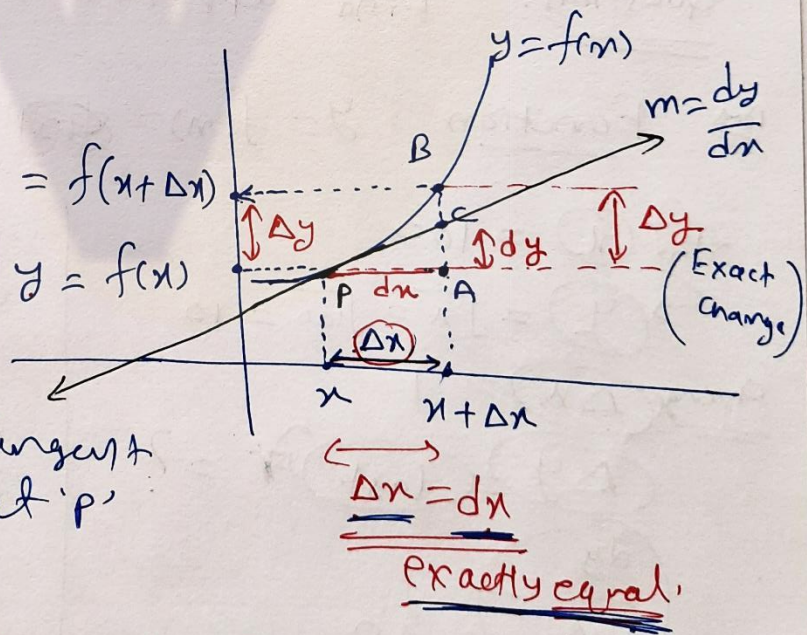 y = f(x)
m = dy/dx
B
= f(x + Δx)
C
Δy
dy
Δy
y = f(x)
P
dx
A
(Exact
Change)
Δx
x
x + Δx
angent
t 'p'
Δx = dx
exactly equal.